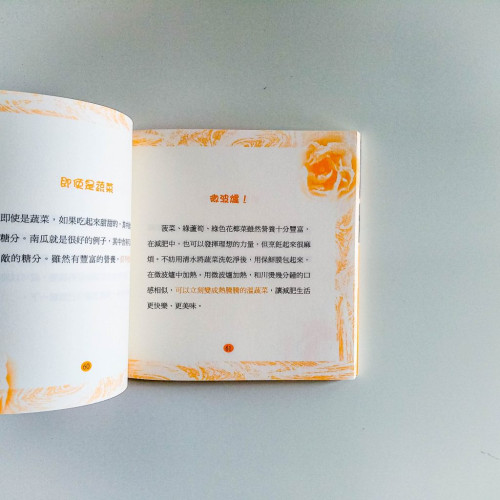 即使是蔬菜
即使是蔬菜，如果吃起來甜甜的，
糖分。南瓜就是很好的例子，其中
敵的糖分。雖然有豐富的營養，
60
微波爐！
菠菜、綠蘆筍、綠色花椰菜雖然營養十分豐富，
在減肥中，也可以發揮理想的力量，但烹飪起來很麻
煩。不妨用清水將蔬菜洗乾淨後，用保鮮膜包起來，
在微波爐中加熱。用微波爐加熱，和川燙幾分鐘的口
感相似，可以立刻變成熱騰騰的溫蔬菜，讓減肥生活
更快樂、更美味。
61